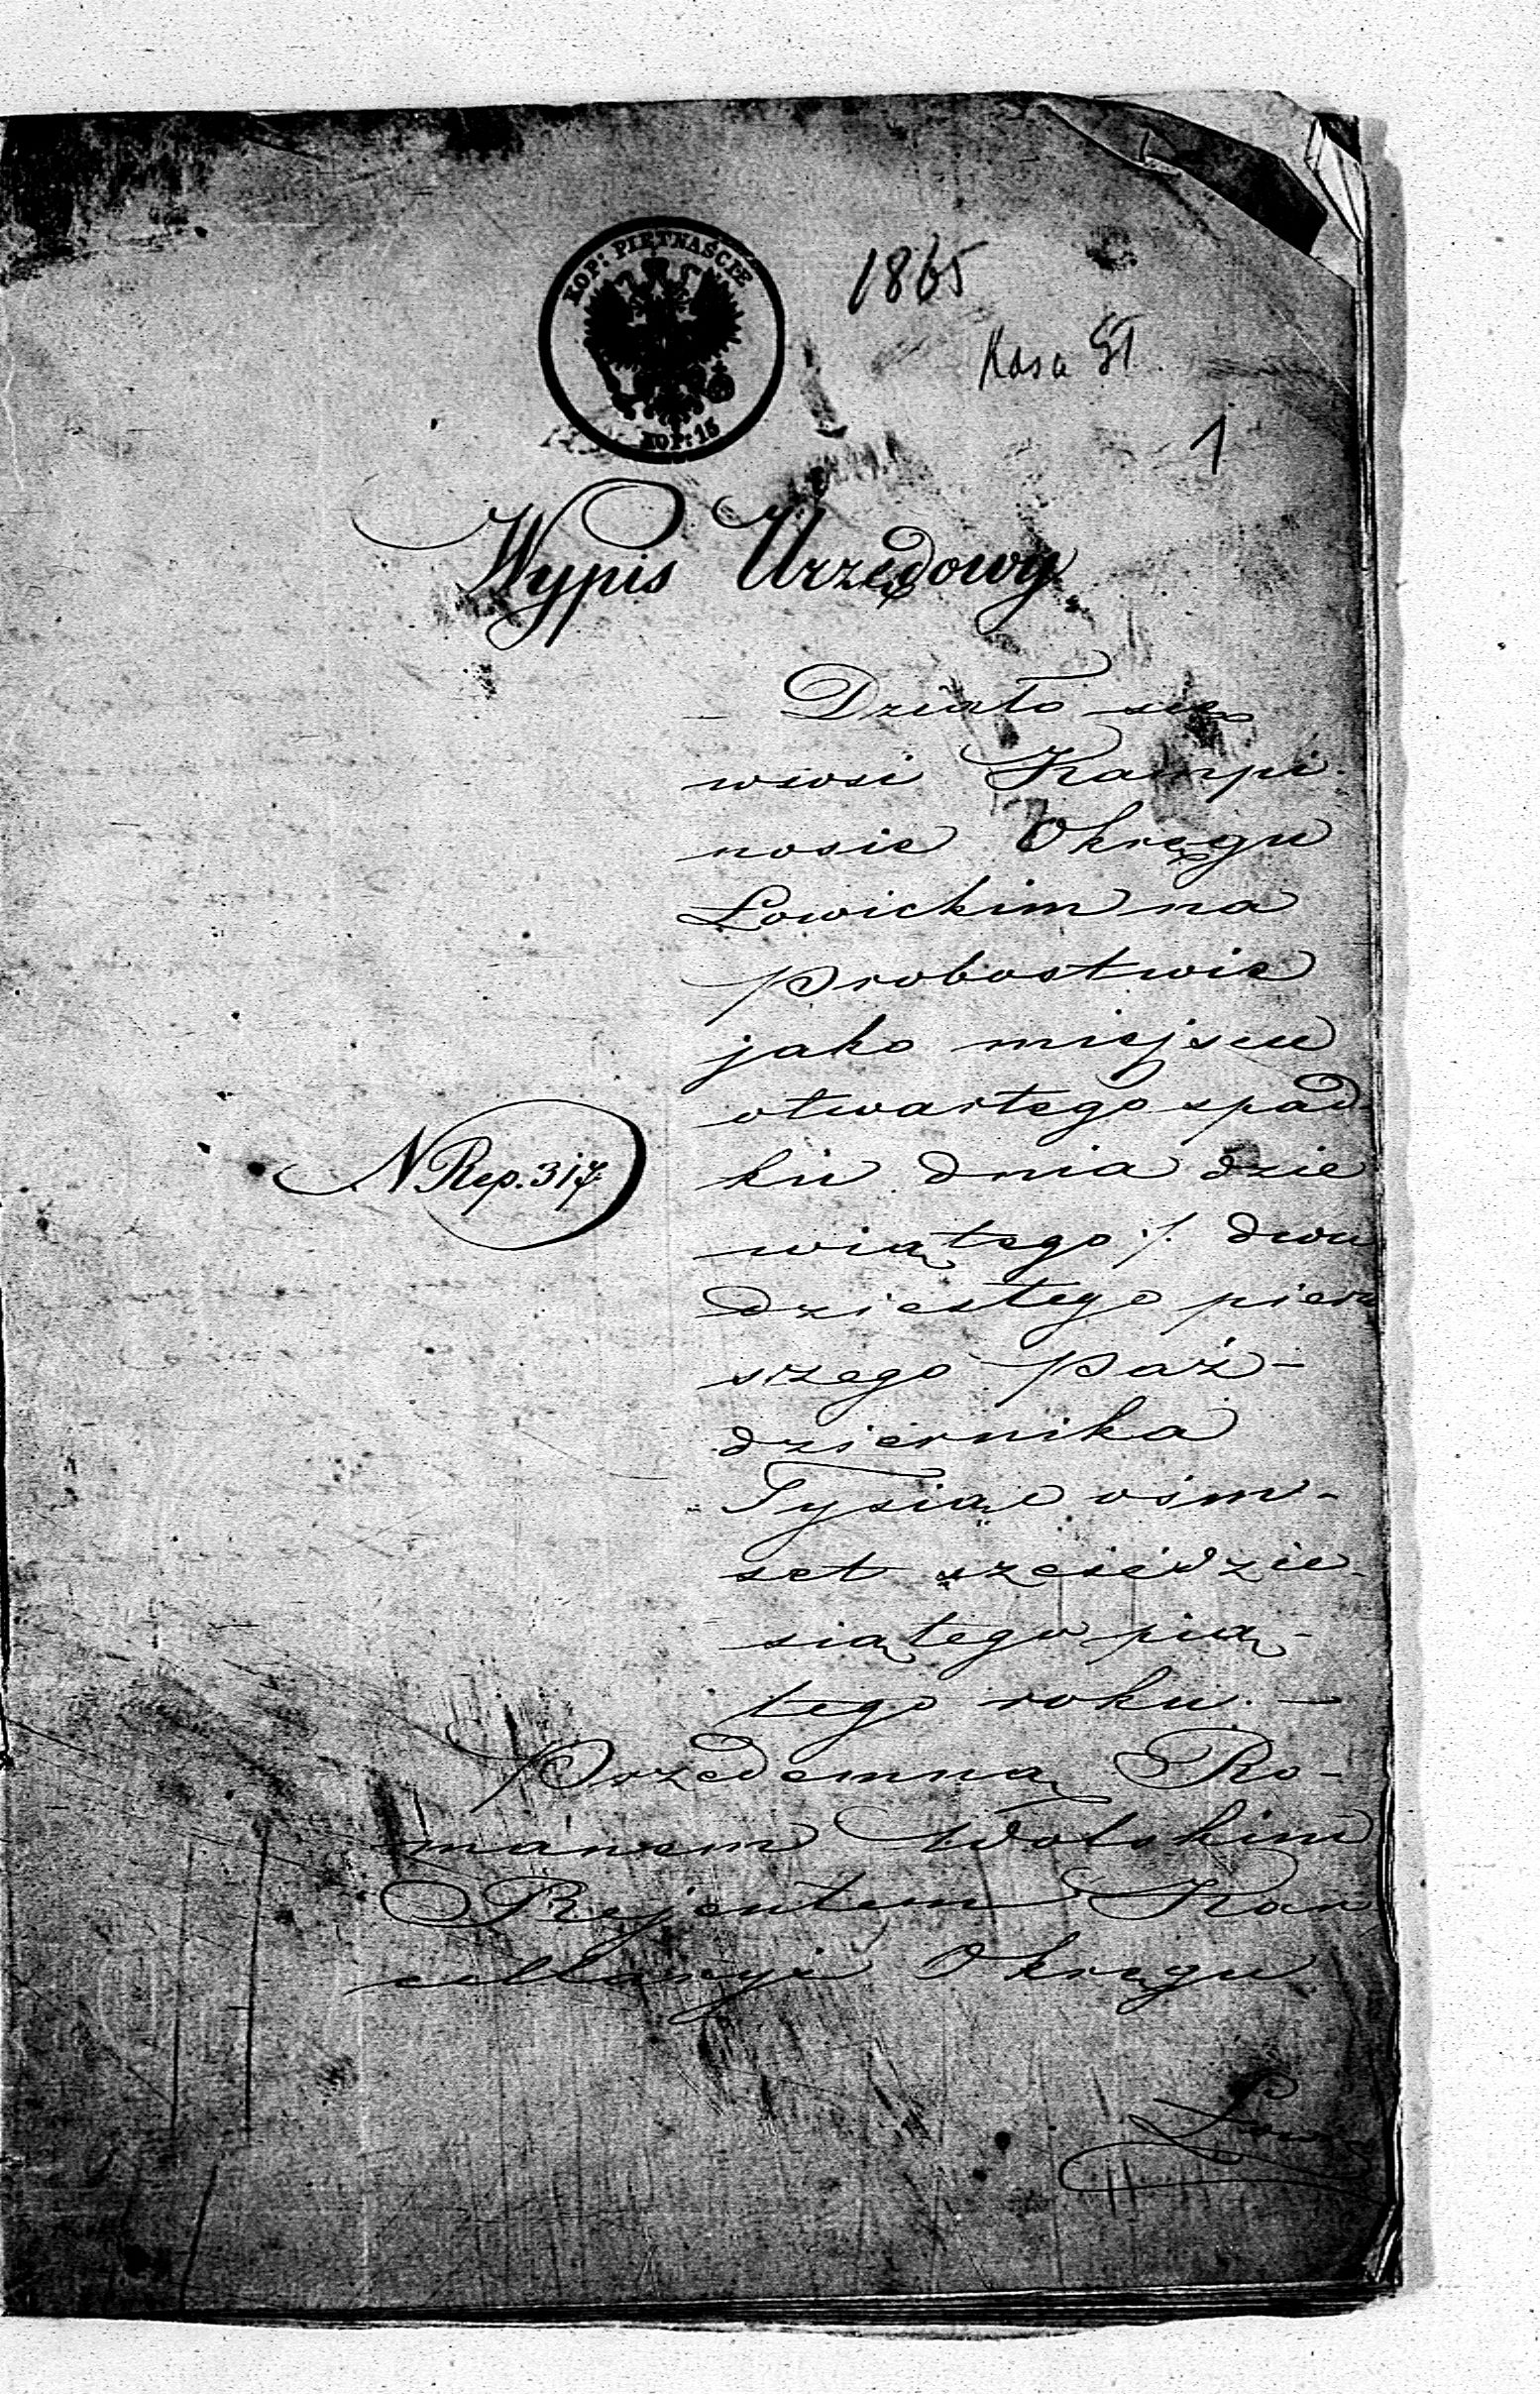 KOP: PIĘTNAŚCIE
KOP: 15
1865
Kasa
1
Wypis Urzędowy.
Działo się
wewsi Kampi-
nosie Okręgu
Łowickim na
Probostwie
jako miejscu
otwartego spad-
ku dnia dzie
wiątego /. dwu
dziestego pierw
szego Paź-
dziernika
Tysiąc ośm-
set sześćdzie-
siątego pią-
tego roku. —
N Rep. 317.
Przedemną Ro-
manem Wolskim
Rejentem Kan
cellaryi Okręgu